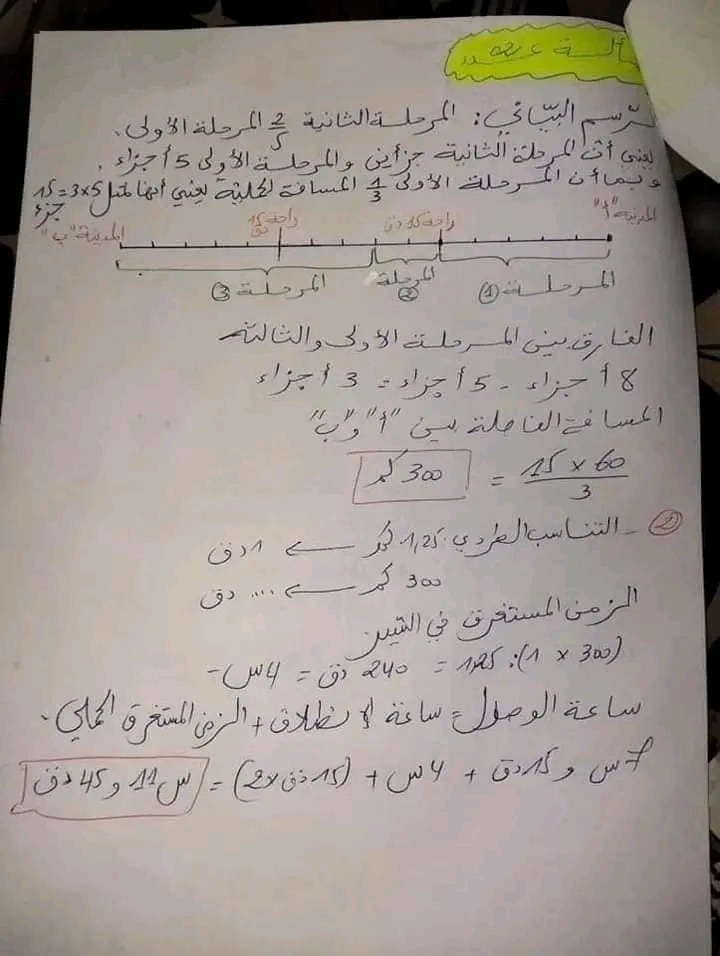 ألة عـــدد 02
ـرّسم البيّاني: المرحلة الثانية 2/5 المرحلة الأولى.
يعني أنّ المرحلة الثانية جزأين والمرحلة الأولى 5 أجزاء.
وبما أن المرحلة الأولى 1/3 المسافة الكليّة يعني أنها تمثل 5×3=15 جزء
المدينة "أ" راحة 15 دق راحة 15 دق المدينة "ب"
المرحلة (1) المرحلة (2) المرحلة (3)
الفارق بين المرحلة الأولى والثالثة
8 أجزاء - 5 أجزاء = 3 أجزاء
المسافة الفاصلة بين "أ" و "ب"
15 × 60 / 3 = 300 كم
(2) - التناسب الطردي: 1,25 كم ← 1 دق
300 كم ← .... دق
الزمن المستغرق في السّير
(300 × 1) : 1,25 = 240 دق = 4 س -
ساعة الوصول = ساعة الانطلاق + الزمن المستغرق الجملي.
7 س و 15 دق + 4 س + (15 دق × 2) = 11 س و 45 دق